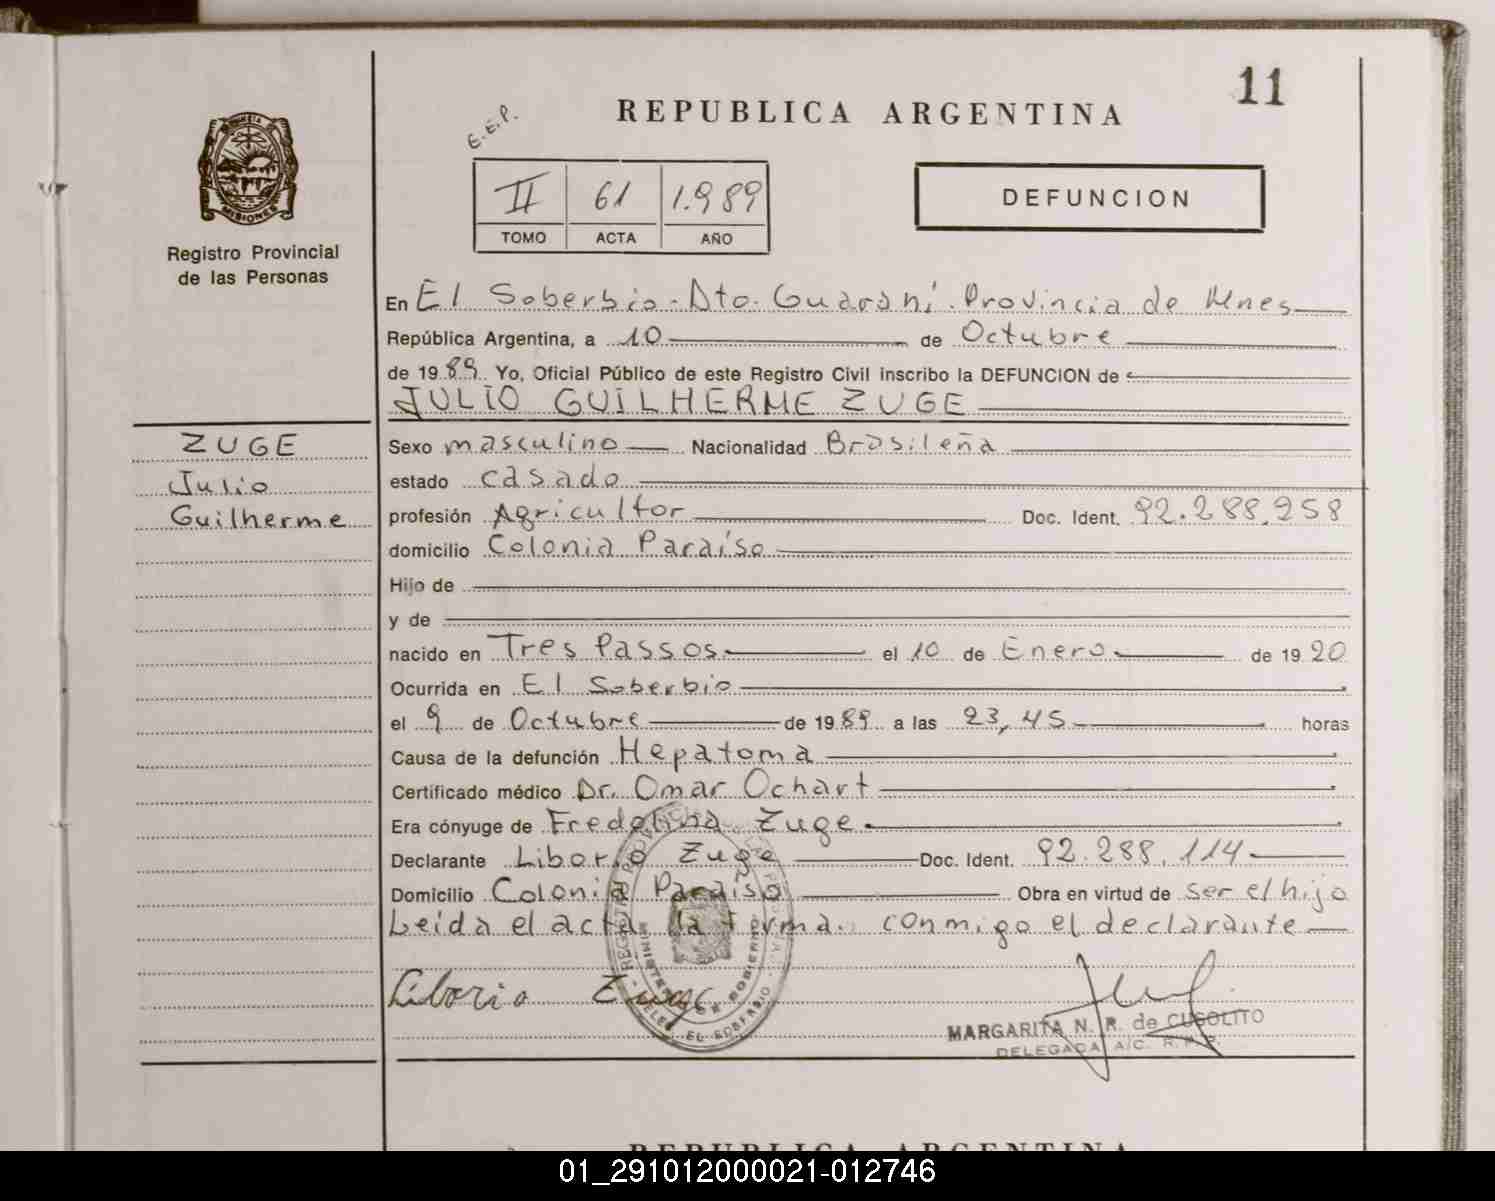 11
REPUBLICA ARGENTINA
E.E.P.
II 61 1.989
TOMO ACTA AÑO
DEFUNCION
MISIONES
Registro Provincial
de las Personas
En El Soberbio - Dto. Guaraní. Provincia de Mnes
República Argentina, a 10 de Octubre
de 1989. Yo, Oficial Público de este Registro Civil inscribo la DEFUNCION de
JULIO GUILHERME ZUGE
ZUGE
Julio
Guilherme
Sexo masculino Nacionalidad Brasileña
estado casado
profesión Agricultor Doc. Ident. 92.288.258
domicilio Colonia Paraíso
Hijo de
y de
nacido en Tres Passos el 10 de Enero de 1920
Ocurrida en El Soberbio
el 9 de Octubre de 1989 a las 23,45 horas
Causa de la defunción Hepatoma
Certificado médico Dr. Omar Ochart
Era cónyuge de Fredolina Zuge
Declarante Liborio Zuge Doc. Ident. 92.288.114
Domicilio Colonia Paraíso Obra en virtud de ser el hijo
Leída el acta la firma conmigo el declarante
Liborio Zuge
MARGARITA N. R. de CUSOLITO
DELEGADA A/C. R.P.P.
EL SOBERBIO
REPUBLICA ARGENTINA
01_291012000021-012746